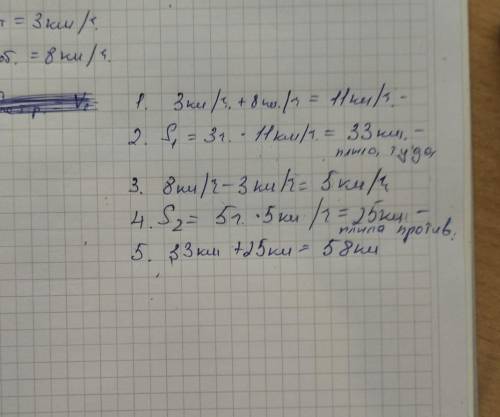 = 3км/ч.
об. = 8км/ч.
1. 3км/ч. + 8км./ч = 11км/ч. -
2. S₁ = 3ч. · 11км/ч. = 33км. -
плыла туда
3. 8км/ч - 3км/ч = 5км/ч
4. S₂ = 5ч. · 5км/ч = 25км. -
плыла против.
5. 33км + 25км = 58км